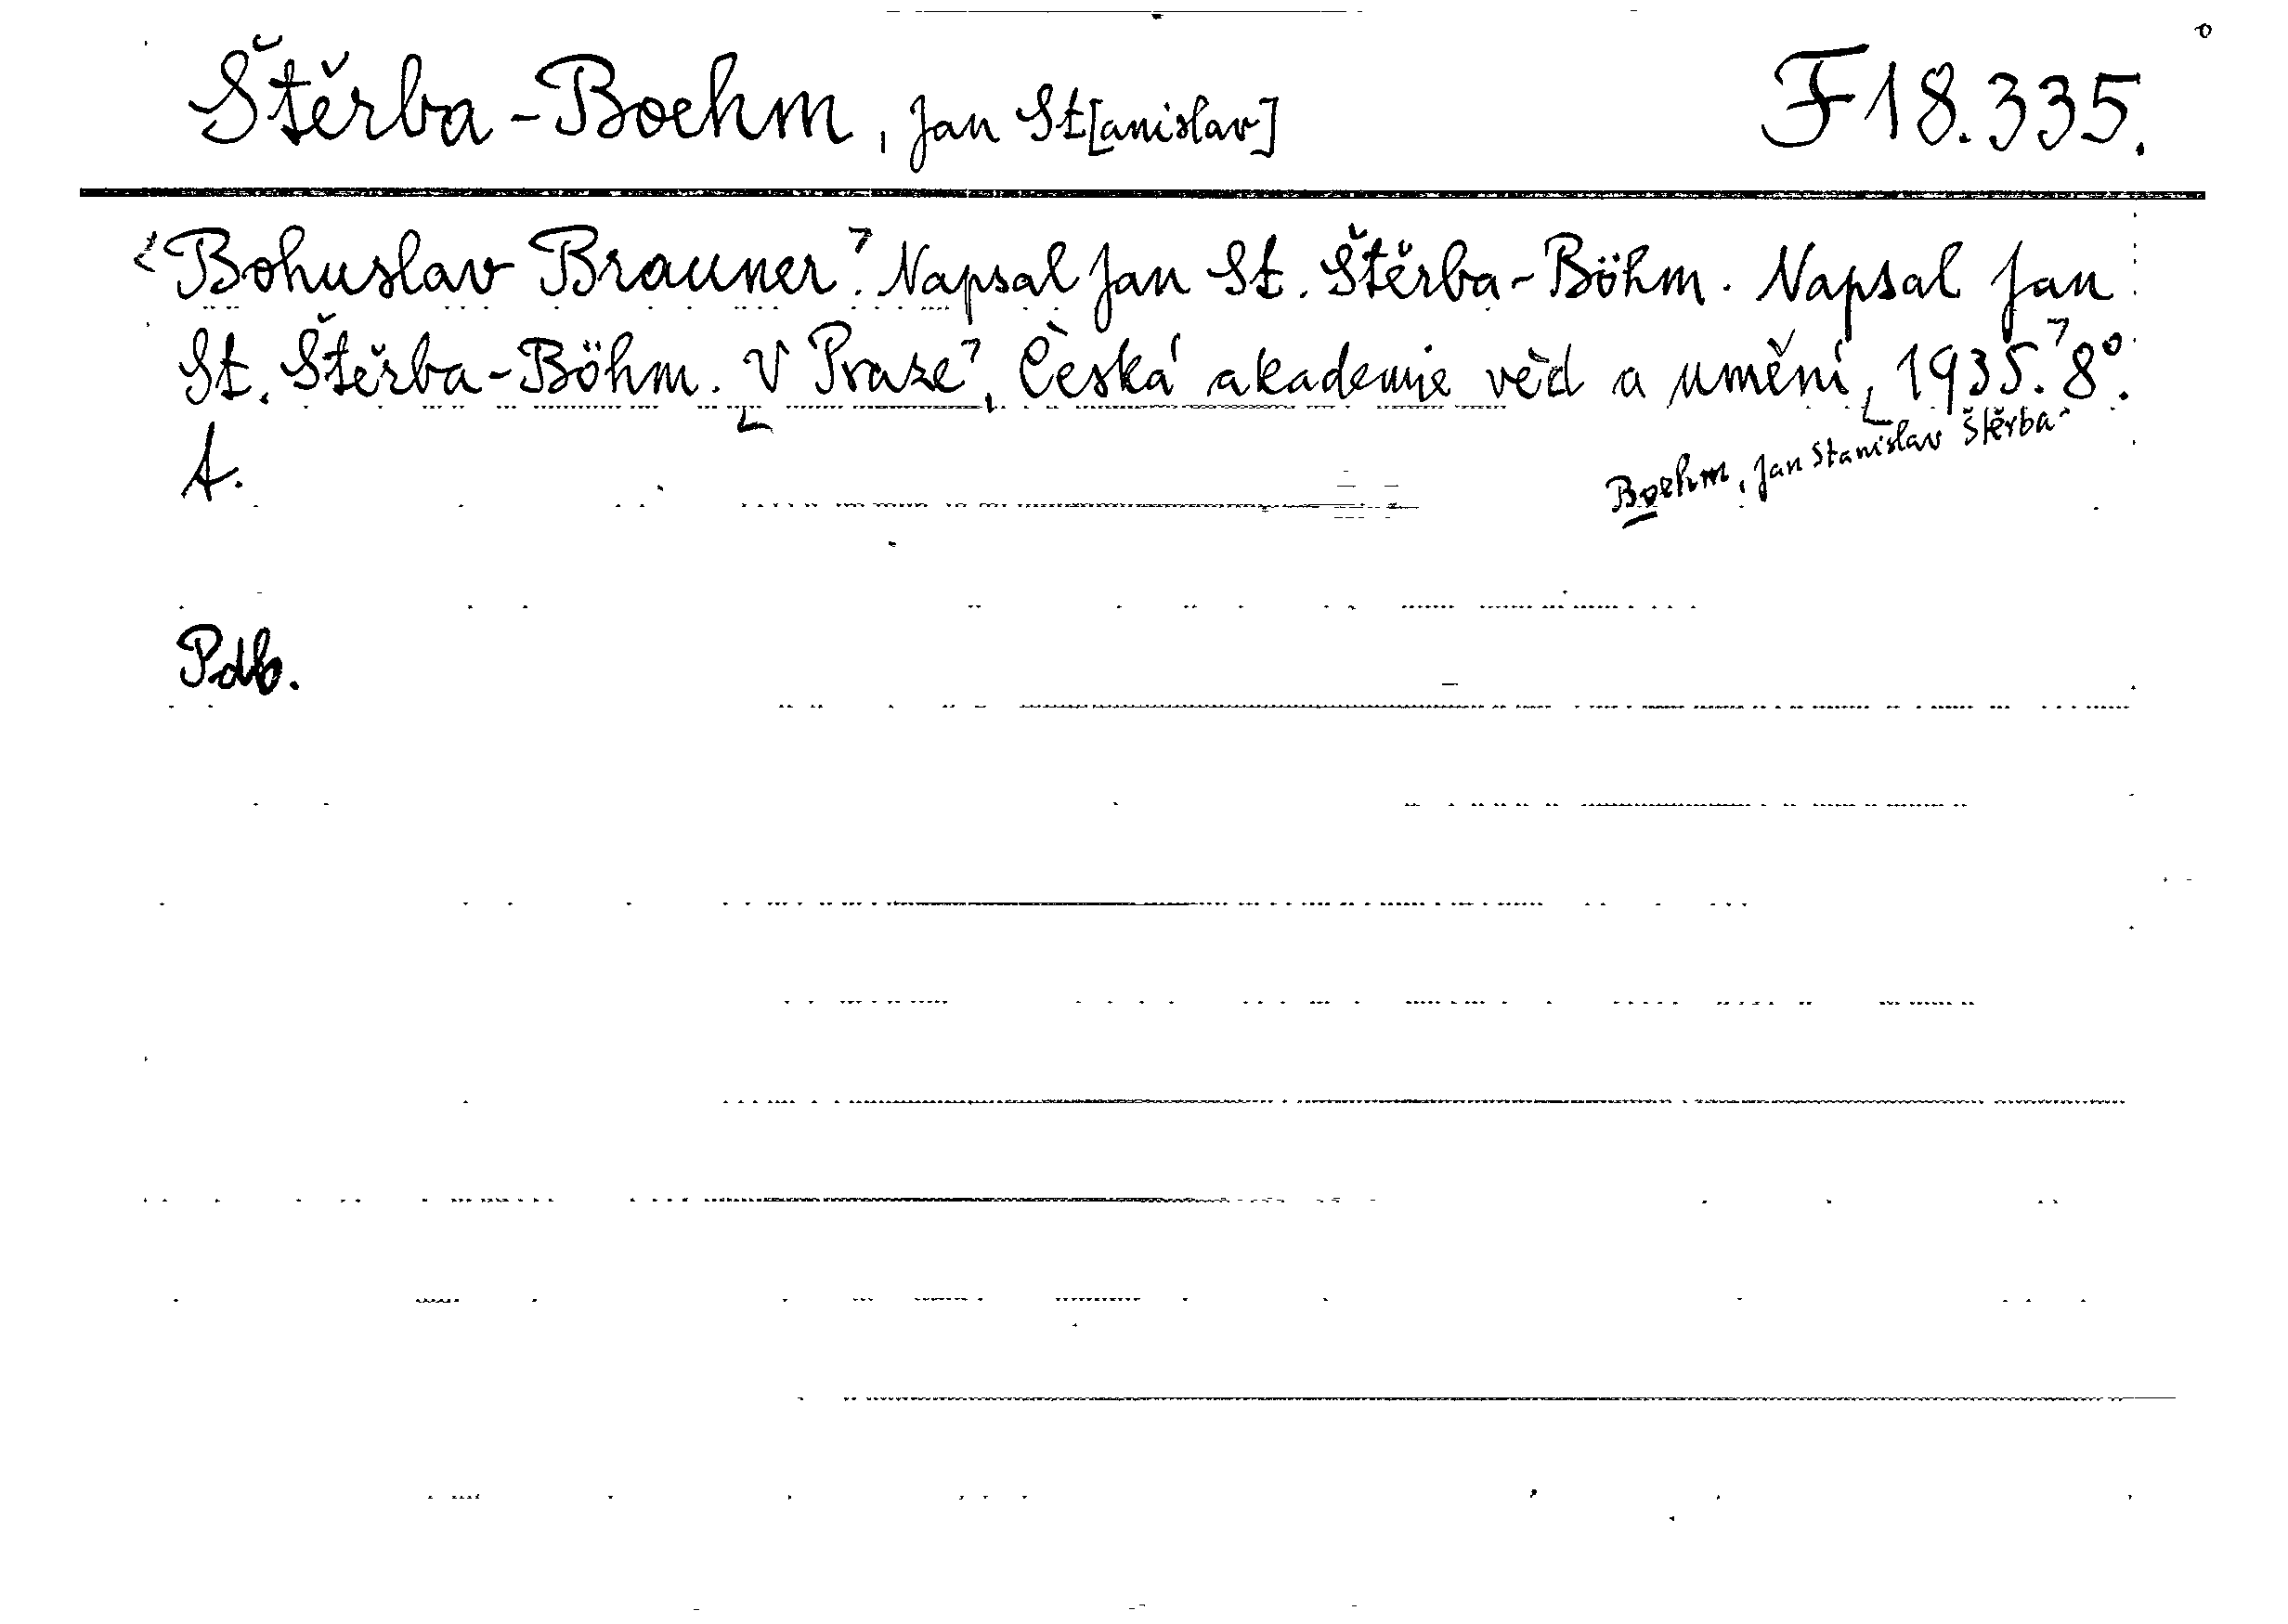 Štěrba-Boehm, Jan St[anislav] F18.335.
Bohuslav Brauner. Napsal Jan St. Štěrba-Böhm. Napsal Jan
St. Štěrba-Böhm. V Praze, Česká akademie věd a umění, 1935. 8°.
Boehm, Jan Stanislav Štěrba-
A.
Pdb.